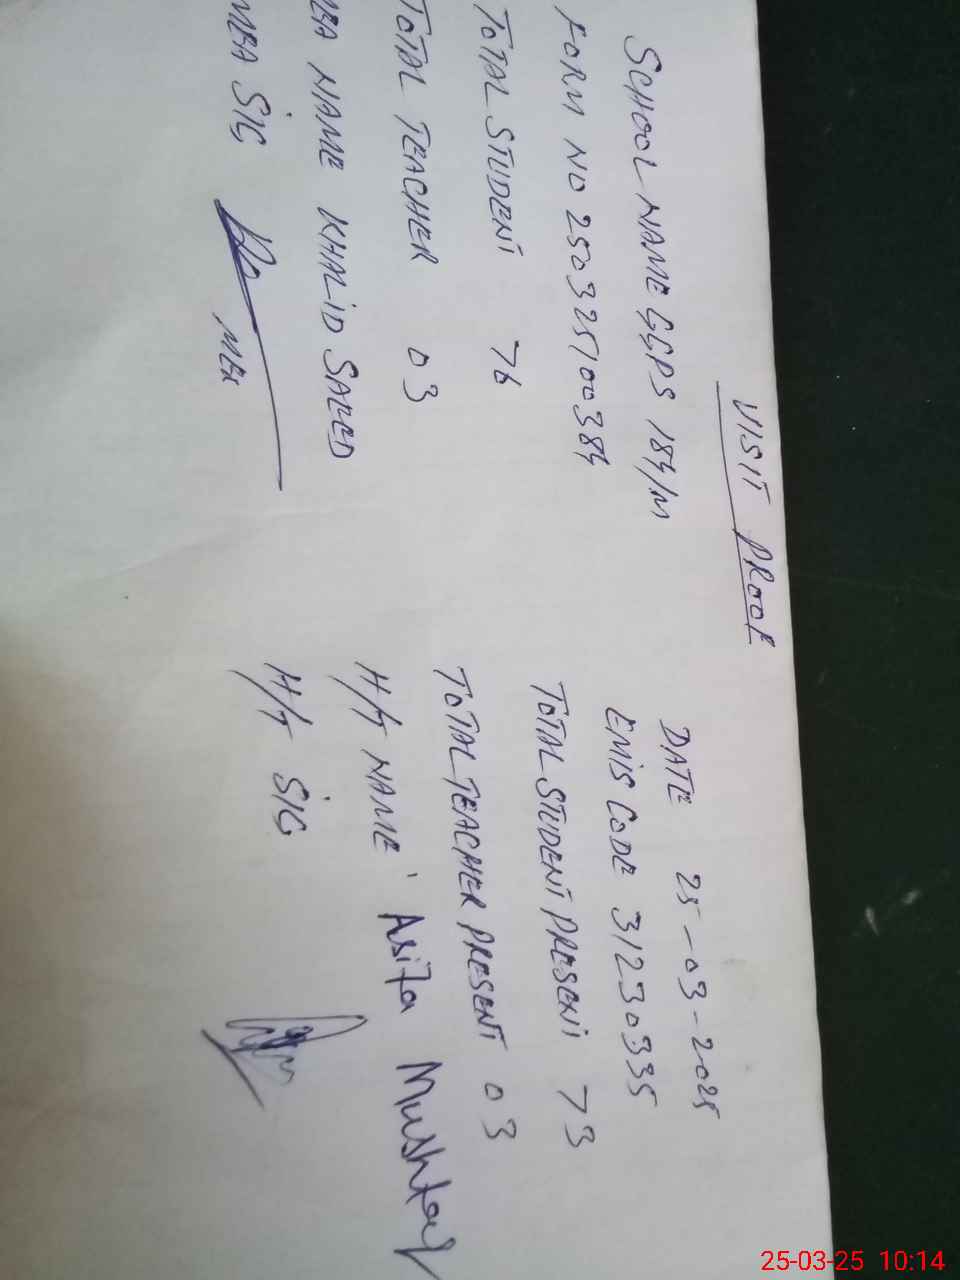 VISIT PROOF
DATE 25-03-2025
SCHOOL NAME GGPS 184/M
EMIS CODE 31230335
FORM NO 250325100384
TOTAL STUDENT 76
TOTAL STUDENT PRESENT 73
TOTAL TEACHER 03
TOTAL TEACHER PRESENT 03
MEA NAME KHALID SAEED
H/T NAME Asifa Mushtaq
MEA SIG
H/T SIG
MEA
25-03-25 10:14